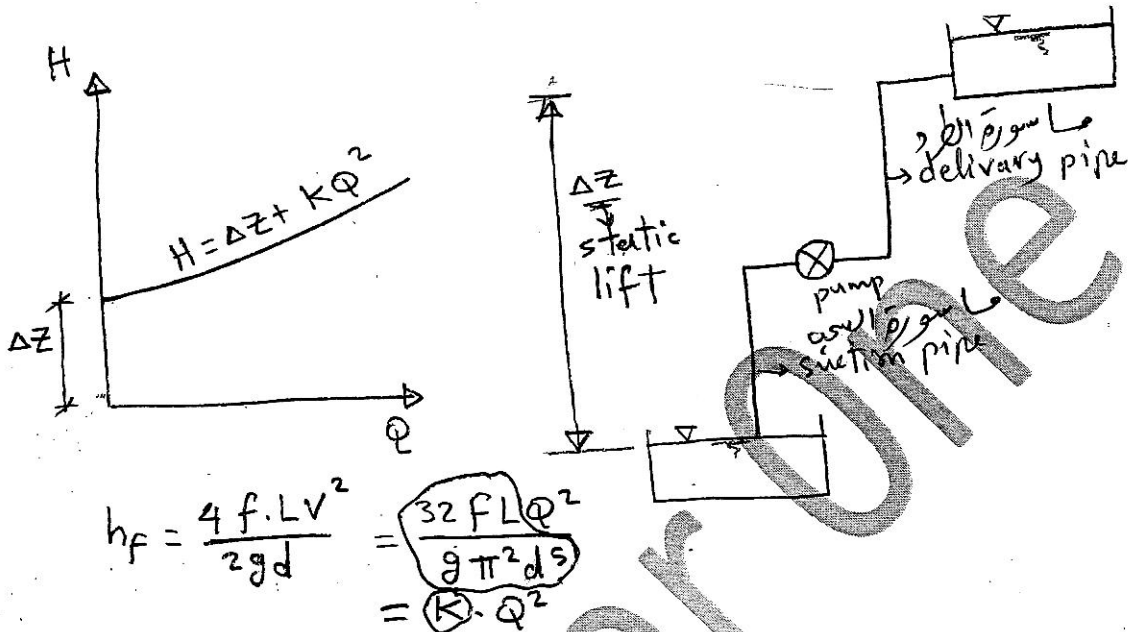 H
H = ΔZ + KQ²
ΔZ
Q
ΔZ
static
lift
ماسورة الطرد
delivary pipe
pump
ماسورة السحب
suction pipe
h_f = 4 f.LV² / 2gd = 32 f L Q² / g π² d⁵
= K. Q²
One